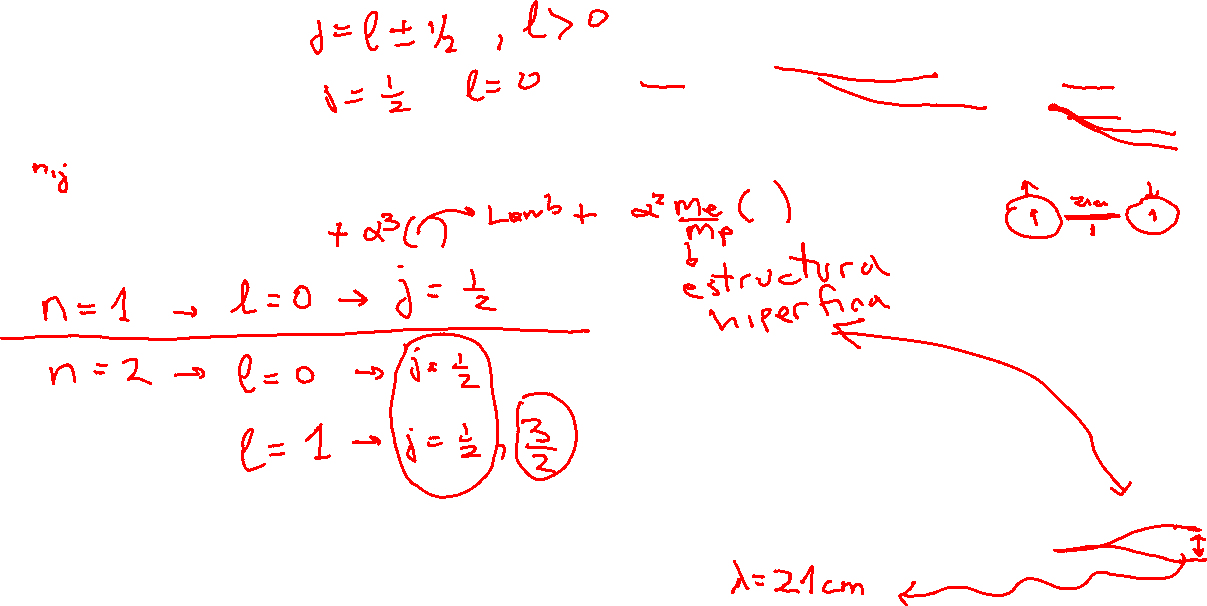 j = l ± 1/2 , l > 0
j = 1/2 l = 0
n,j
+ α³( ) → Lamb + α² me/mp ( )
estructura
hiperfina
21cm
n = 1 → l = 0 → j = 1/2
n = 2 → l = 0 → j = 1/2
l = 1 → j = 1/2 , 3/2
λ = 21cm